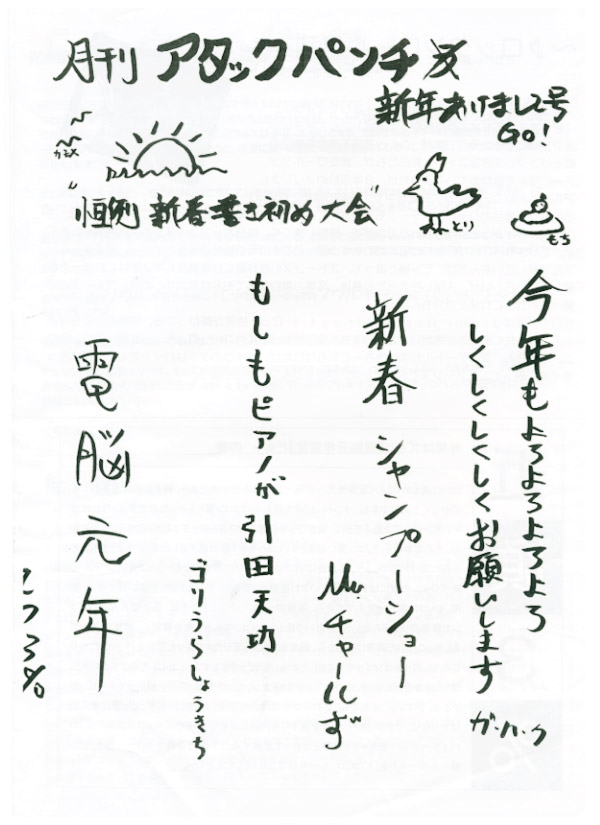 月刊 アタックパンチ
新年あけまして号
GO!
"恒例 新春書き初め大会"
とり
もち
今年もよろよろよろよろ
しくしくしくしくお願いします
ガ・ハク
新春 シャンプーショー
Mr.チャールズ
もしもピアノが引田天功
ゴリラのしょうきち
電脳元年